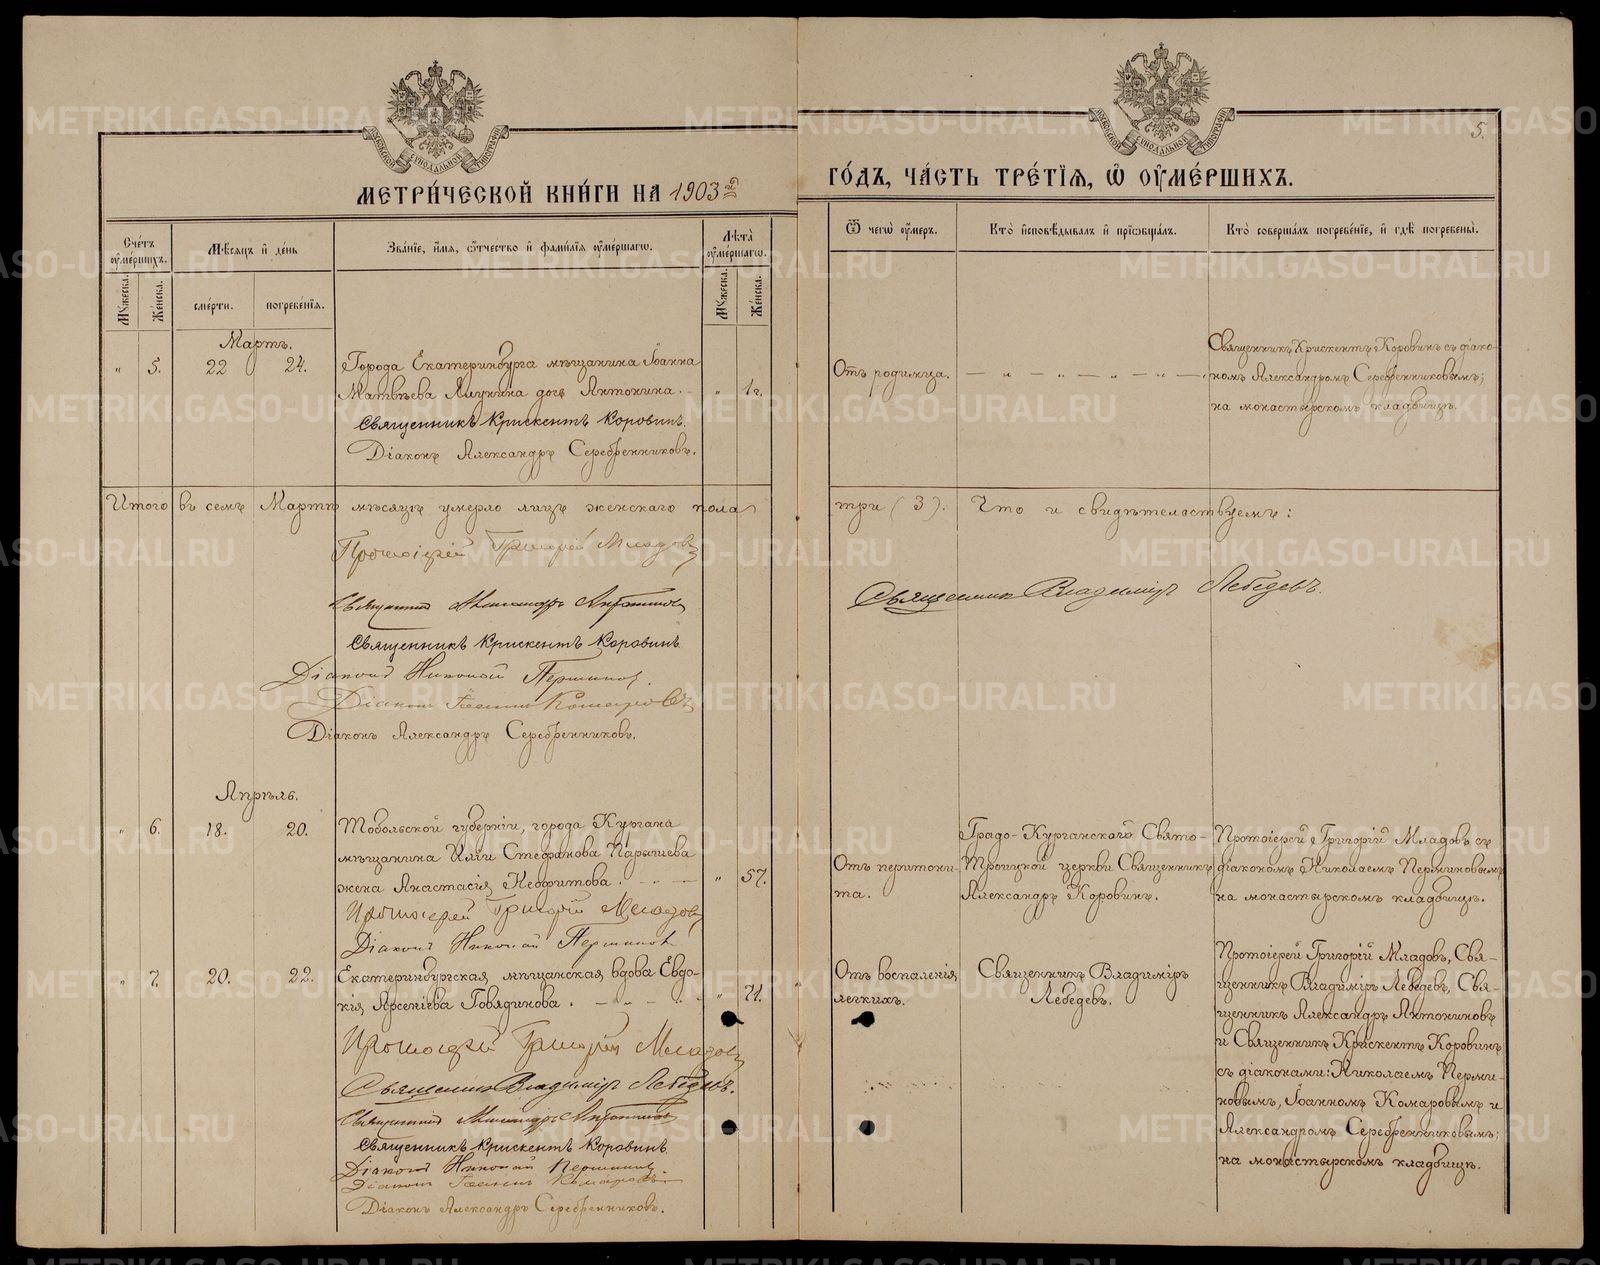 МЕТРИ́ЧЕСКОЙ КНИ́ГИ НА 1903
ГО́ДЪ, ЧА́СТЬ ТРЕ́ТІЯ, Ѡ ОУ҆МЕ́РШИХЪ.
5.
Сче́тъ оу҆ме́ршихъ.
Мѣ́сяцъ и де́нь
Зва́ніе, и҆́мя, ѻ҆́тчество и҆ фами́лія оу҆ме́ршагѡ.
Лѣ́та оу҆ме́ршагѡ.
Ѿ чегѡ̀ оу҆́меръ.
Кто̀ и҆сповѣ́дывалъ и҆ прїѡбща́лъ.
Кто̀ соверша́лъ погребе́ніе, и҆ гдѣ̀ погребены̀.
Му́жеска.
Же́нска.
сме́рти.
погребе́нія.
Му́жеска.
Же́нска.
Мартъ.
" 5. 22 24.
Города Екатеринбурга мѣщанина Іоанна
Матвѣева дочь Антонина.
" 1 г.
Священникъ Крискентъ Коровинъ.
Діаконъ Александръ Серебренниковъ.
Отъ родимца.
— " — " — " — " —
Священникъ Крискентъ Коровинъ съ діако-
номъ Александромъ Серебренниковымъ;
на монастырскомъ кладбищѣ.
Итого въ семъ Мартѣ мѣсяцѣ умерло лицъ женскаго пола
три (3). Что и свидѣтельствуемъ:
Протоіерей Григорій Младовъ
Священникъ Александръ Антониновъ
Священникъ Крискентъ Коровинъ
Діаконъ Николай Перминовъ.
Діаконъ Іоаннъ Комаровъ
Діаконъ Александръ Серебренниковъ.
Священникъ Владиміръ Лебедевъ.
Апрѣль.
" 6. 18. 20.
Тобольской губерніи, города Кургана
мѣщанина Иліи Стефанова Парышева
жена Анастасія Неофитова. - - —
" 57.
Протоіерей Григорій Младовъ
Діаконъ Николай Перминовъ
Отъ перитони-
та.
Градо-Курганской Свято-
Троицкой церкви Священникъ
Александръ Коровинъ.
Протоіерей Григорій Младовъ съ
діакономъ Николаемъ Перминовымъ
на монастырскомъ кладбищѣ.
" 7. 20. 22.
Екатеринбургская мѣщанская вдова Евдо-
кія Арсеніева Говядинова. - — -
" 71.
Протоіерей Григорій Младовъ
Священникъ Владиміръ Лебедевъ.
Священникъ Александръ Антониновъ
Священникъ Крискентъ Коровинъ
Діаконъ Николай Перминовъ.
Діаконъ Іоаннъ Комаровъ
Діаконъ Александръ Серебренниковъ.
Отъ воспаленія
легкихъ.
Священникъ Владиміръ
Лебедевъ.
Протоіерей Григорій Младовъ, Свя-
щенникъ Владиміръ Лебедевъ, Свя-
щенникъ Александръ Антониновъ
и Священникъ Крискентъ Коровинъ
съ діаконами: Николаемъ Перми-
новымъ, Іоанномъ Комаровымъ и
Александромъ Серебренниковымъ;
на монастырскомъ кладбищѣ.
METRIKI.GASO-URAL.RU